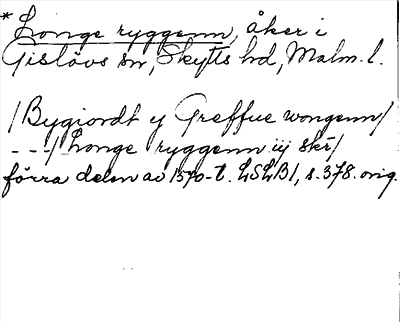 * Longe ryggenn, åker i
Gislövs sn, Skytts hd, Malm. l.
/Bygiordt y Greffue wongenn/
---/ Longe ryggenn iij ske/
förra delen av 1570-t. LSLB1, s. 378. orig.